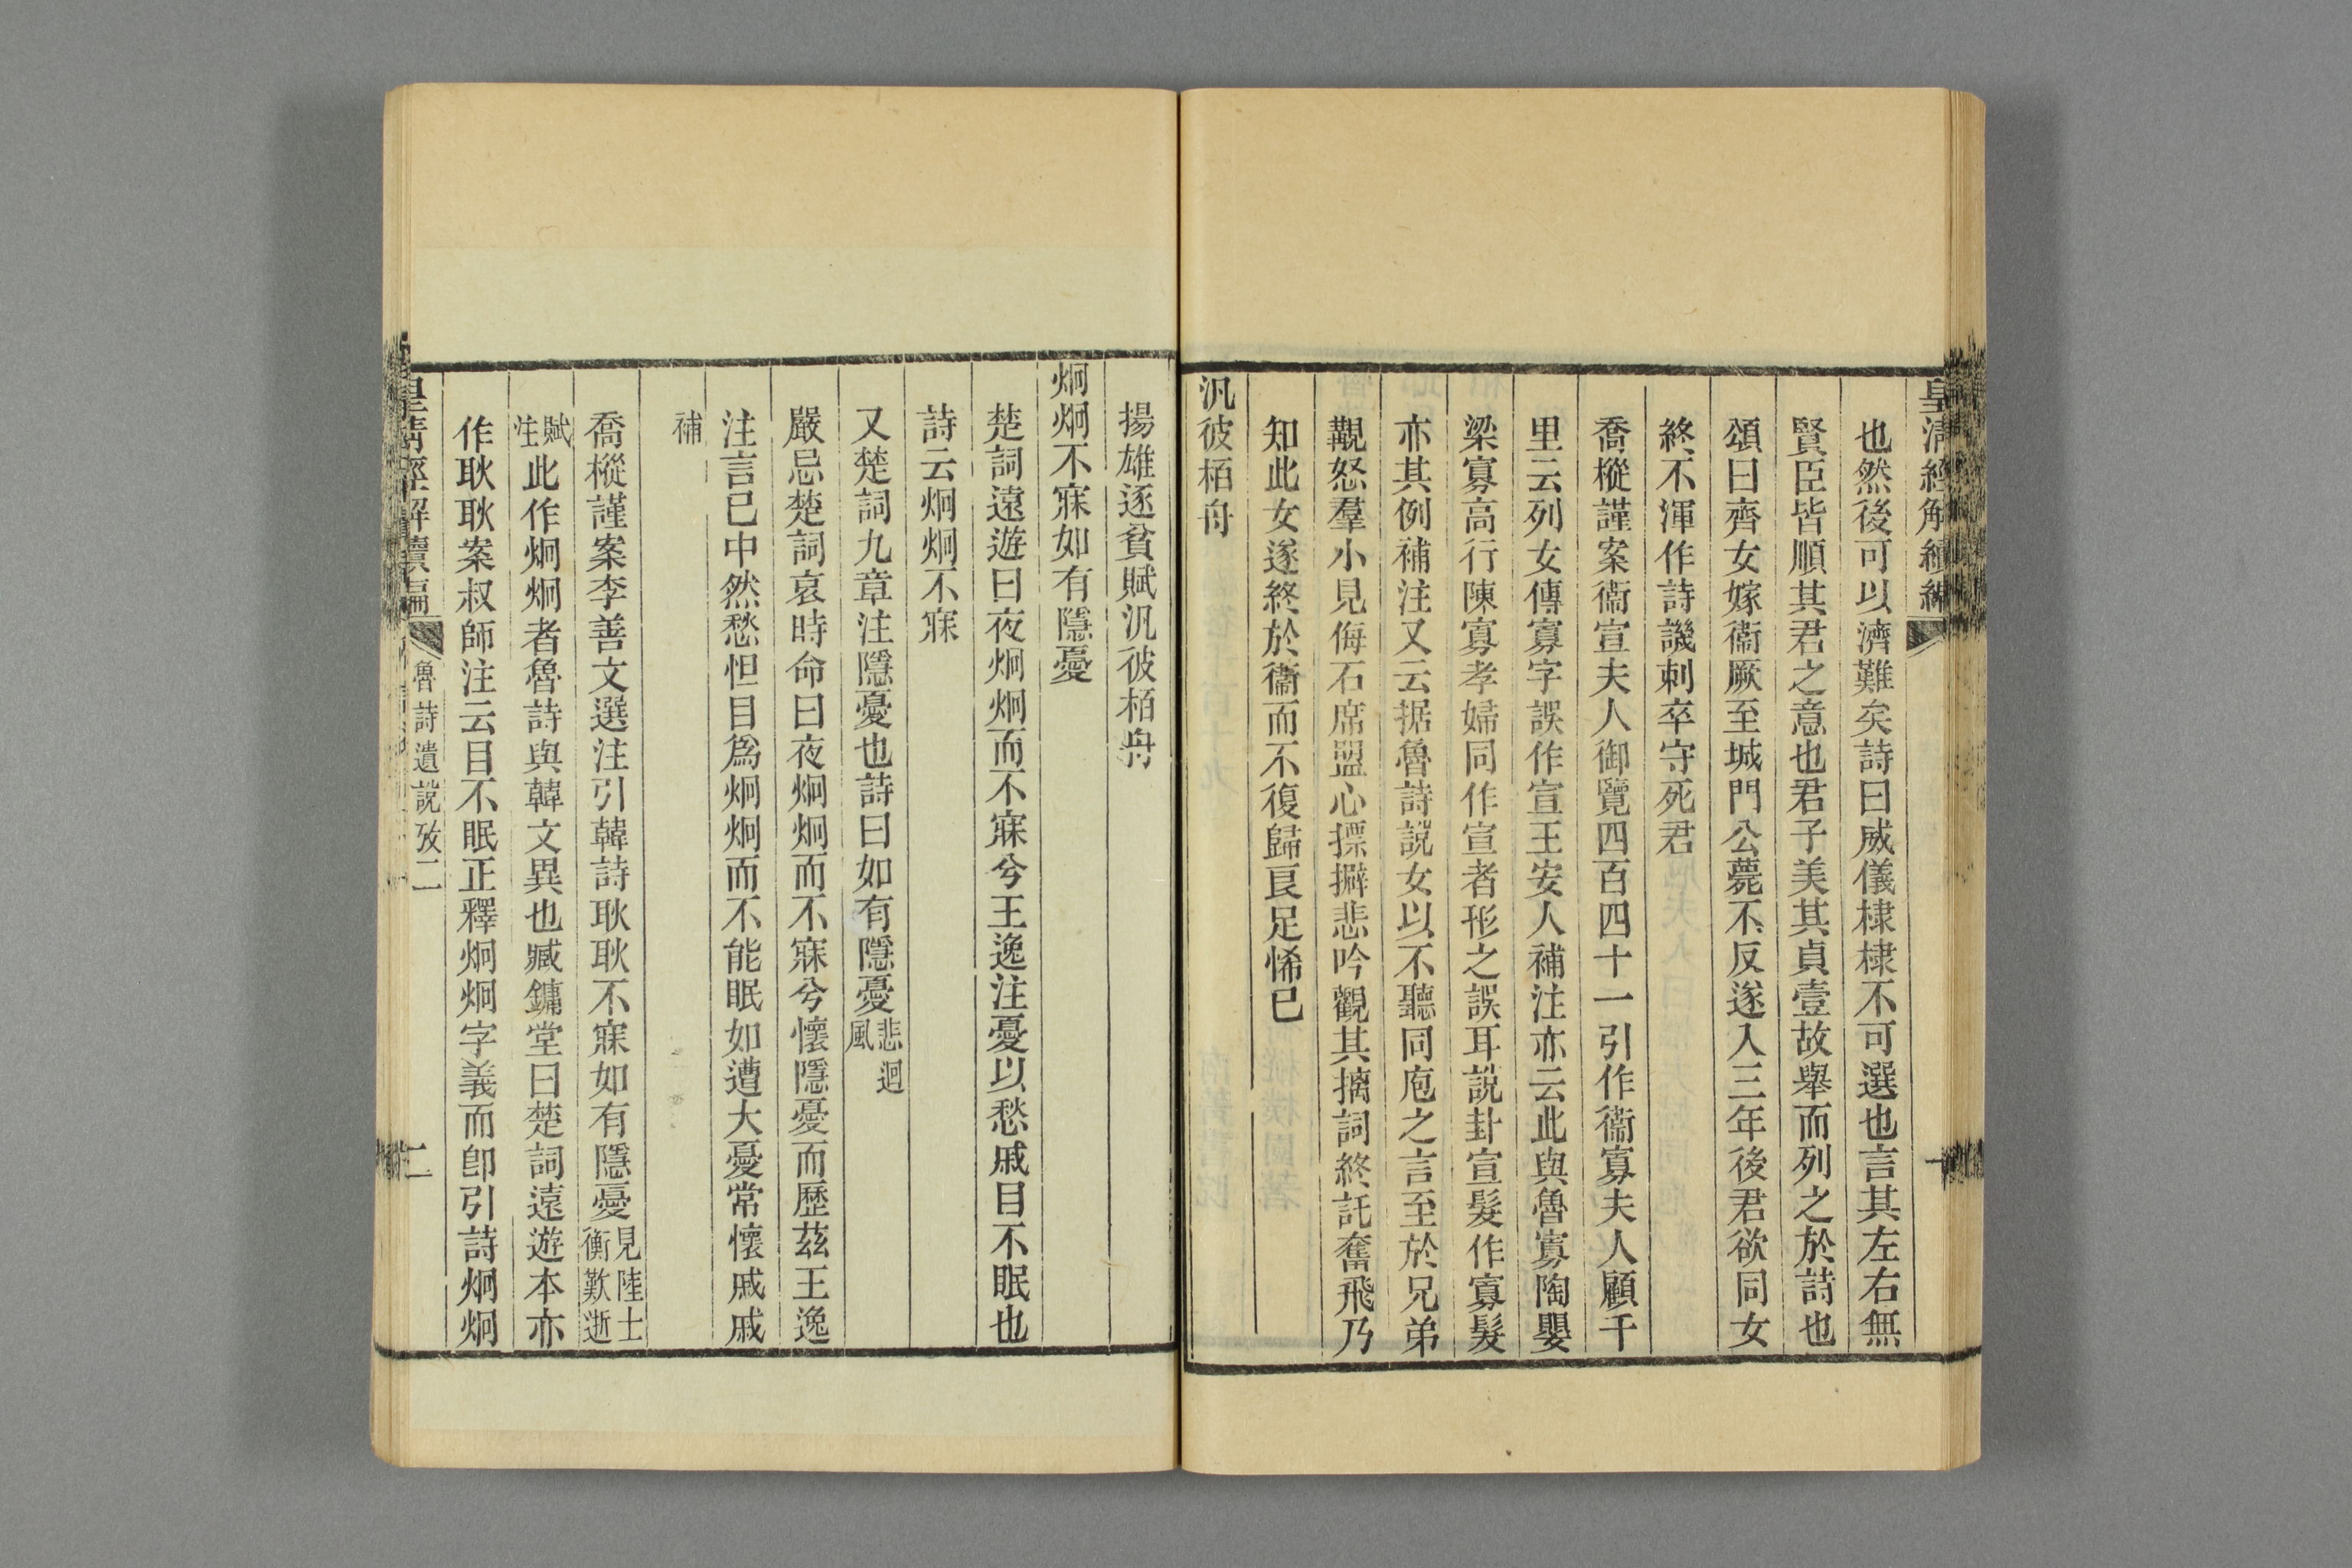 皇清經解續編
一
也然後可以濟難矣詩曰威儀棣棣不可選也言其左右無
賢臣皆順其君之意也君子美其貞壹故舉而列之於詩也
頌曰齊女嫁衞厥至城門公薨不反遂入三年後君欲同女
終不渾作詩譏刺卒守死君
喬樅謹案衞宣夫人御覽四百四十一引作衞寡夫人顧千
里云列女傳寡字誤作宣王安人補注亦云此與魯寡陶嬰
梁寡高行陳寡孝婦同作宣者形之誤耳說卦宣髮作寡髮
亦其例補注又云据魯詩說女以不聽同庖之言至於兄弟
覯怒羣小見侮石席盟心摽擗悲吟觀其摛詞終託奮飛乃
知此女遂終於衞而不復歸良足悕已
汎彼栢舟
揚雄逐貧賦汎彼栢舟
炯炯不寐如有隱憂
楚詞遠遊曰夜炯炯而不寐兮王逸注憂以愁戚目不眠也
詩云炯炯不寐
又楚詞九章注隱憂也詩曰如有隱憂悲迴
風
嚴忌楚詞哀時命曰夜炯炯而不寐兮懷隱憂而歷茲王逸
注言已中然愁怛目爲炯炯而不能眠如遭大憂常懷戚戚
補
喬樅謹案李善文選注引韓詩耿耿不寐如有隱憂見陸士
衡歎逝
賦
注此作炯炯者魯詩與韓文異也臧鏞堂曰楚詞遠遊本亦
作耿耿案叔師注云目不眠正釋炯炯字義而卽引詩炯炯
皇清經解續編
魯詩遺說攷二
二